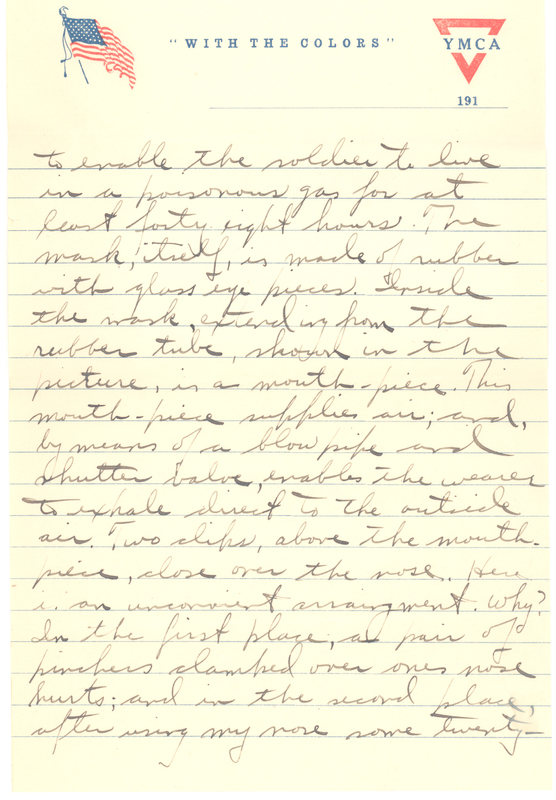 "WITH THE COLORS"
YMCA
191
to enable the soldier to live
in a poisonous gas for at
least forty eight hours. The
mask, itself, is made of rubber
with glass eye pieces. Inside
the mask, extending from the
rubber tube, shown in the
picture, is a mouth-piece. This
mouth-piece supplies air; and,
by means of a blow pipe and
shutter valve, enables the wearer
to exhale direct to the outside
air. Two clips, above the mouth-
piece, close over the nose. Here
is an unconvient arraingment. Why?
In the first place, a pair of
pinchers clamped over ones nose
hurts; and in the second place,
after using my nose some twenty-